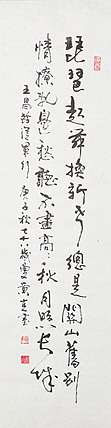 琵琶起舞換新聲總是關山舊別
情撩亂邊愁聽不盡高々秋月照長城
王昌齡從軍行 庚子秋七十八歲叟黃